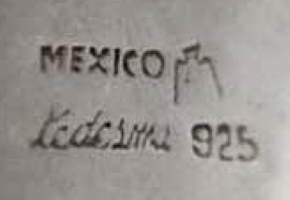 MEXICO
Ledesma 925